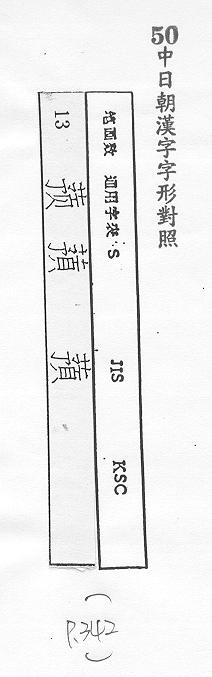 50中日朝漢字字形對照
笔画数 通用字表:S JIS KSC
13 蓣 蕷 蕷
(P.342)